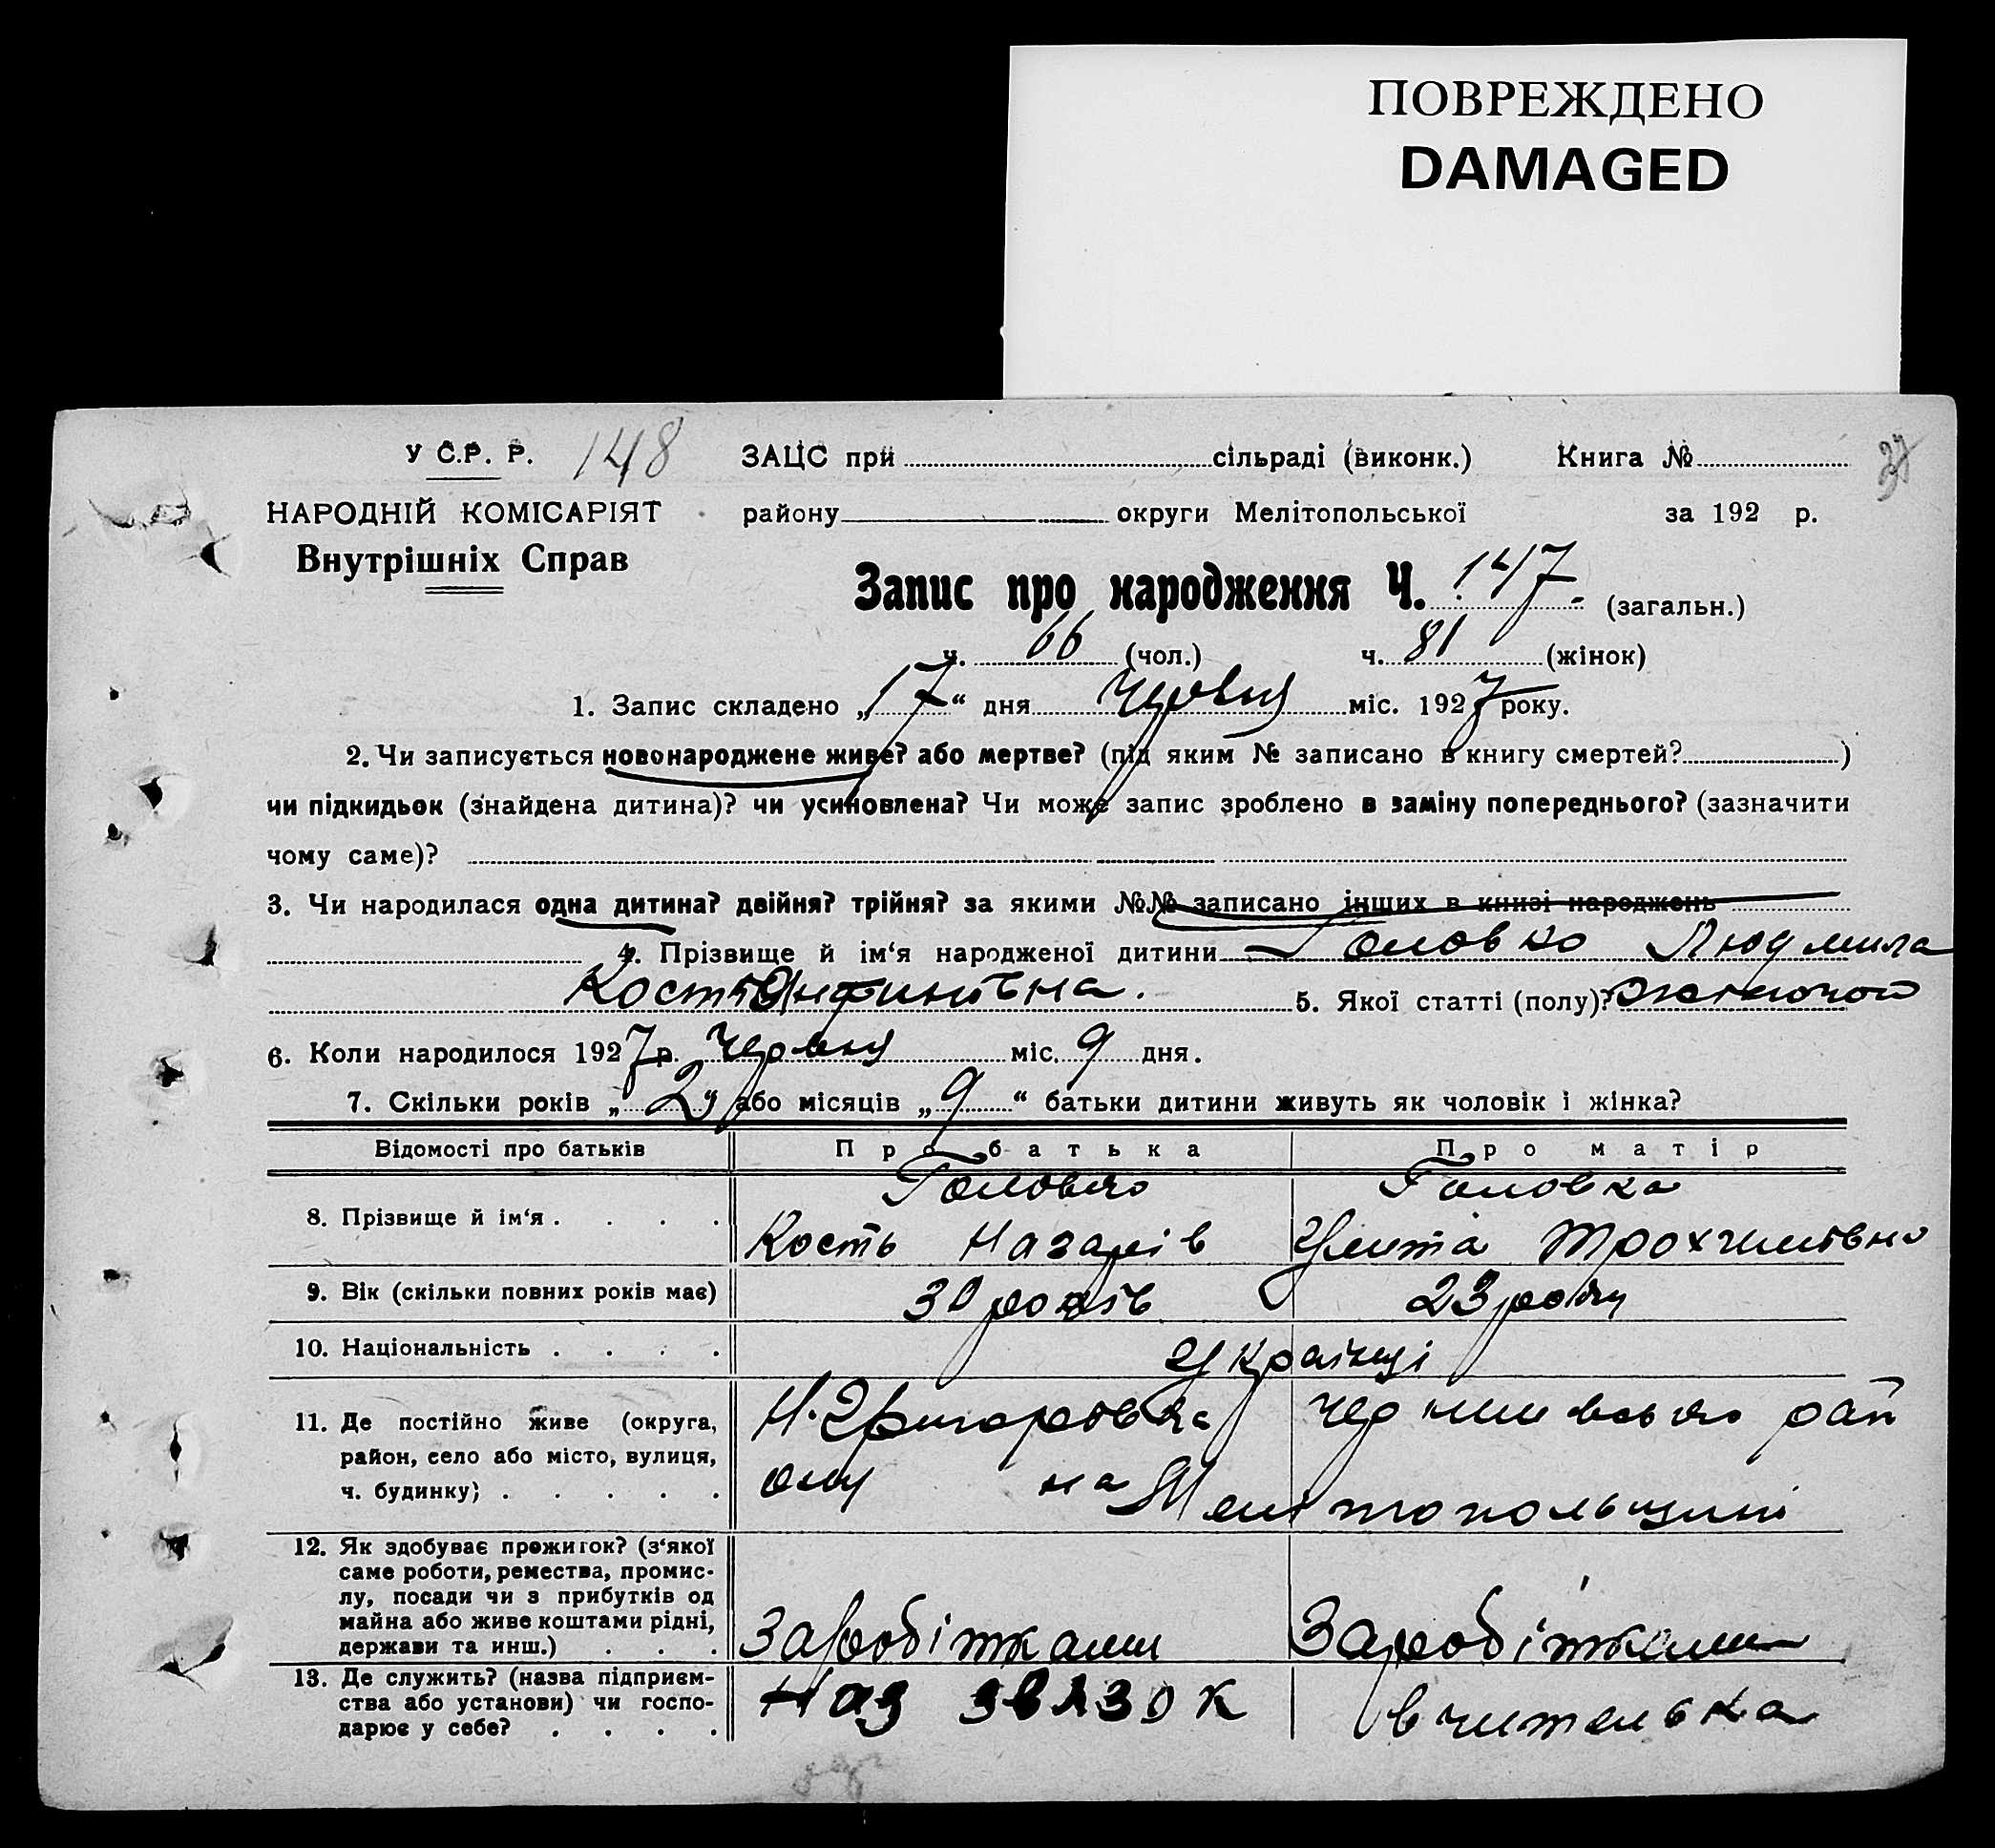 ПОВРЕЖДЕНО
DAMAGED
У С.Р. Р. 148 ЗАЦС при сільраді (виконк.) Книга №
37
НАРОДНІЙ КОМІСАРІЯТ району округи Мелітопольської за 192 р.
Внутрішніх Справ
Запис про народження Ч. 147. (загальн.)
ч. 66 (чол.) ч. 81 (жінок)
1. Запис складено „17“ дня червня міс. 1927 року.
2. Чи записується новонароджене живе? або мертве? (під яким № записано в книгу смертей? )
чи підкидьок (знайдена дитина)? чи усиновлена? Чи може запис зроблено в заміну попереднього? (зазначити
чому саме)?
3. Чи народилася одна дитина? двійня? трійня? за якими №№ записано інших в книзі народжень
4. Прізвище й ім‘я народженої дитини Головко Людмила
Костянтинівна. 5. Якої статті (полу)? жіночої
6. Коли народилося 1927 р. червня міс. 9 дня.
7. Скільки років „2“ або місяців „9“ батьки дитини живуть як чоловік і жінка?
Відомості про батьків Про батька Про матір
8. Прізвище й ім‘я . . . . Головко Кость Назарів Головка Трохимівна
9. Вік (скільки повних років має) 30 років 23 роки
10. Національність . . . . Українці
11. Де постійно живе (округа, Н. Григоровка Чернишівсько рай
район, село або місто, вулиця,
ч. будинку) . . . . . ону на Мелітопольщині
12. Як здобуває прожиток? (з‘якої
саме роботи, ремества, промис-
лу, посади чи з прибутків од
майна або живе коштами рідні,
держави та инш.) . . . Заробітками Заробітками
13. Де служить? (назва підприєм-
ства або установи) чи госпо- Наз звязок вчителька
дарює у себе? . . . .